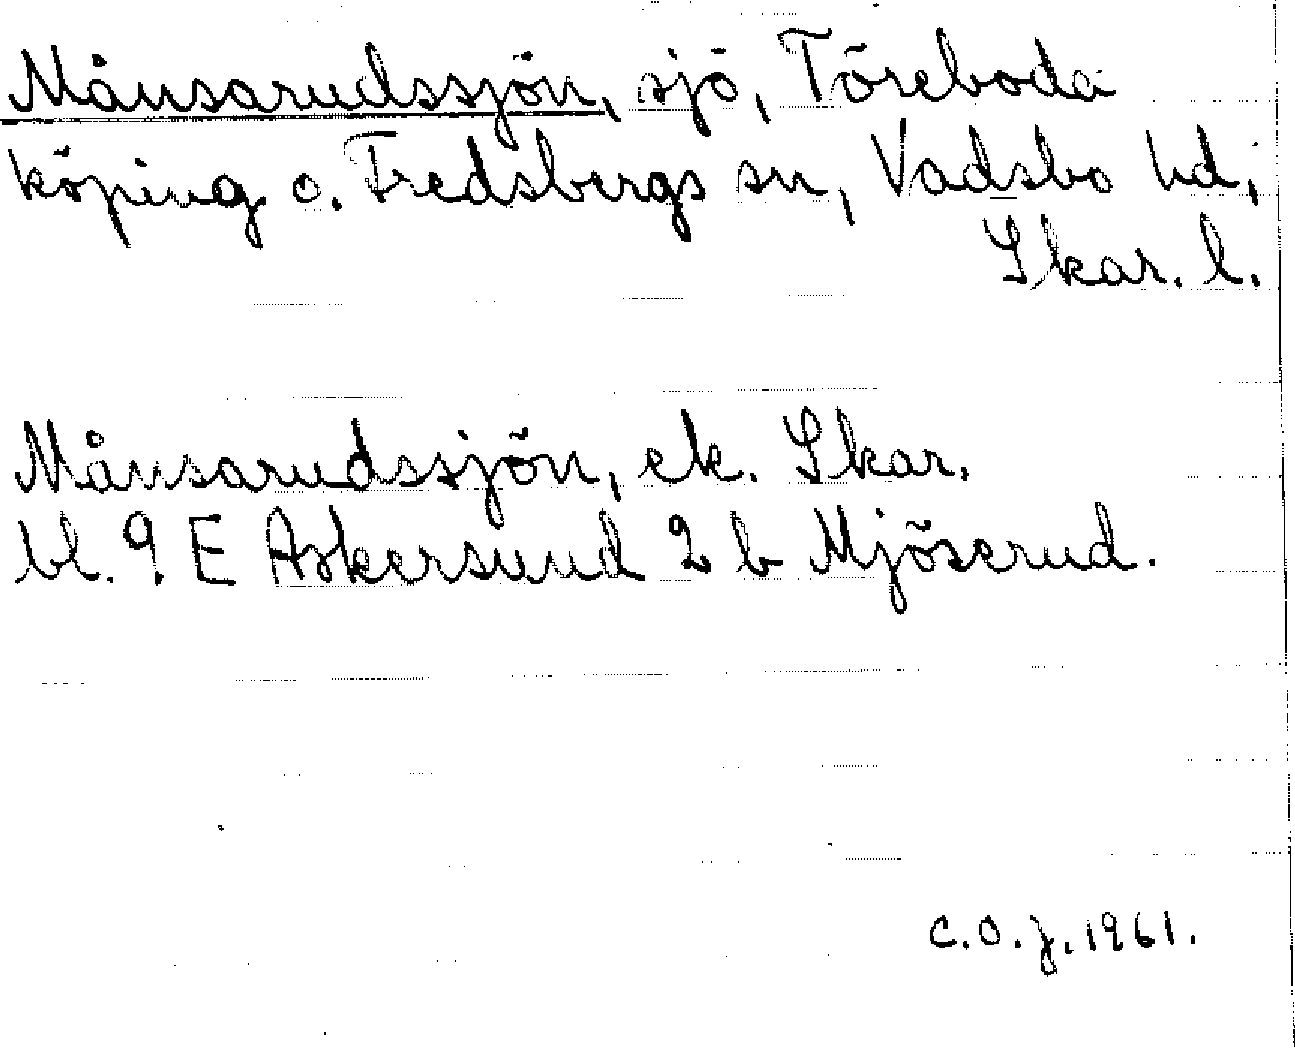 Månsarudssjön, sjö, Töreboda
köping o. Fredsbergs sn, Vadsbo hd,
Skar. l.
Månsarudssjön, ek. Skar.
bl. 9. E Askersund 2 b Mjöserud.
C.O.J. 1961.